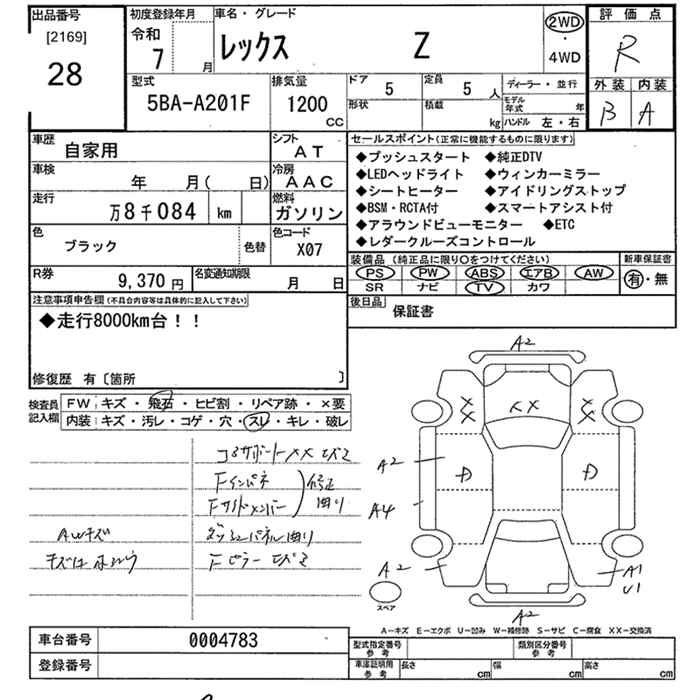 出品番号
[2169]
28
初度登録年月
令和
7 月
車名・グレード
レックス Z
2WD
・
4WD
評価点
R
外装 内装
B A
型式
5BA-A201F
排気量
1200
CC
ドア
5
定員
5 人
形状
積載
kg
ディーラー・並行
モデル年式 年
ハンドル 左・右
車歴
自家用
シフト
AT
車検
年 月( 日)
冷房
AAC
走行
万8千084 km
燃料
ガソリン
色
ブラック
色替
色コード
X07
R券
9,370円
名変通知期限
月 日
セールスポイント(正常に機能するものに限ります)
◆プッシュスタート ◆純正DTV
◆LEDヘッドライト ◆ウィンカーミラー
◆シートヒーター ◆アイドリングストップ
◆BSM・RCTA付 ◆スマートアシスト付
◆アラウンドビューモニター ◆ETC
◆レダークルーズコントロール
装備品(純正品に限り○をつけてください)
新車保証書
PS PW ABS エアB AW
SR ナビ TV カワ
有・無
後日品
保証書
注意事項申告欄(不具合内容等は具体的に記入して下さい)
◆走行8000km台！！
修復歴 有〔箇所 〕
検査員記入欄
FW キズ・飛石・ヒビ割・リペア跡・×要
内装 キズ・汚レ・コゲ・穴・スレ・キレ・破レ
コアサポート XX
Fインパネ
Fサイドメンバー
修正
曲り
AWキズ
パネル曲り
Fピラー
A2
XX
XX
XX
A2
D
D
A4
A2
A1
U1
スペア
A2
A-キズ E-エクボ U-凹み W-補修跡 S-サビ C-腐食 XX-交換済
車台番号
0004783
登録番号
型式指定番号
参考
類別区分番号
参考
車庫証明用
参考
長さ cm
幅 cm
高さ cm